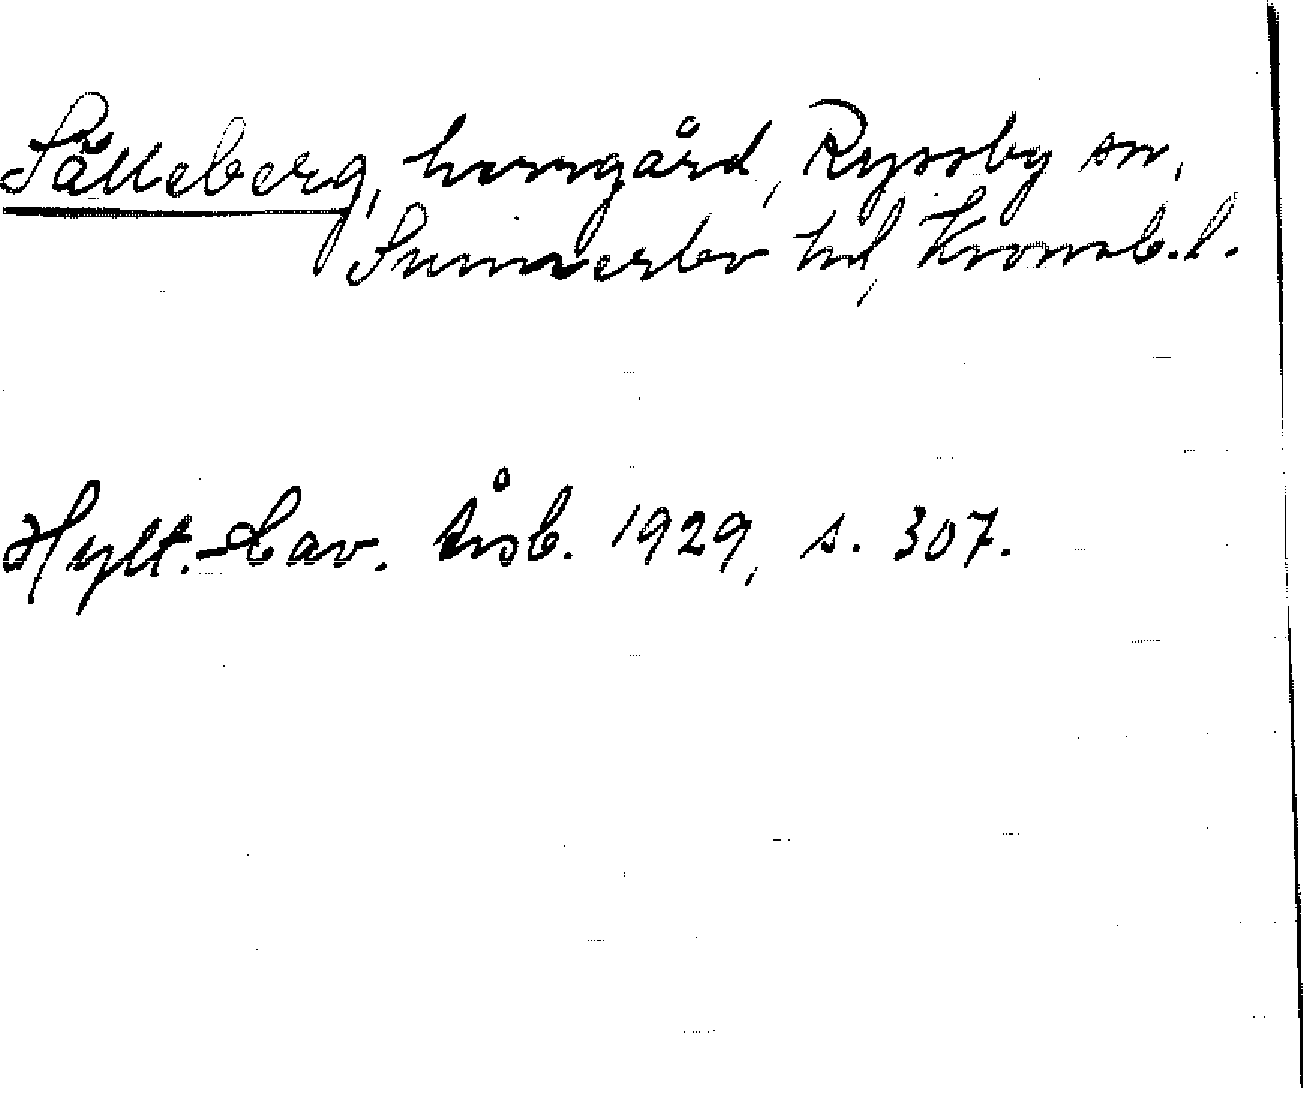 Sälleberg, herrgård, Ryssby sn,
Sunnerbo hd, Kronob. l.
Hylt.-Cav. Årsb. 1929, s. 307.